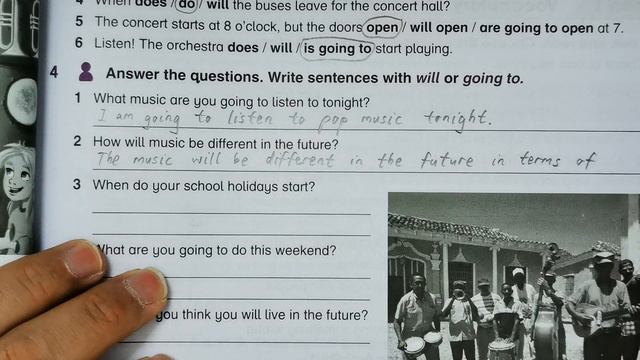 4 When does / do / will the buses leave for the concert hall?
5 The concert starts at 8 o'clock, but the doors open / will open / are going to open at 7.
6 Listen! The orchestra does / will / is going to start playing.
4 Answer the questions. Write sentences with will or going to.
1 What music are you going to listen to tonight?
I am going to listen to pop music tonight.
2 How will music be different in the future?
The music will be different in the future in terms of
3 When do your school holidays start?
What are you going to do this weekend?
you think you will live in the future?